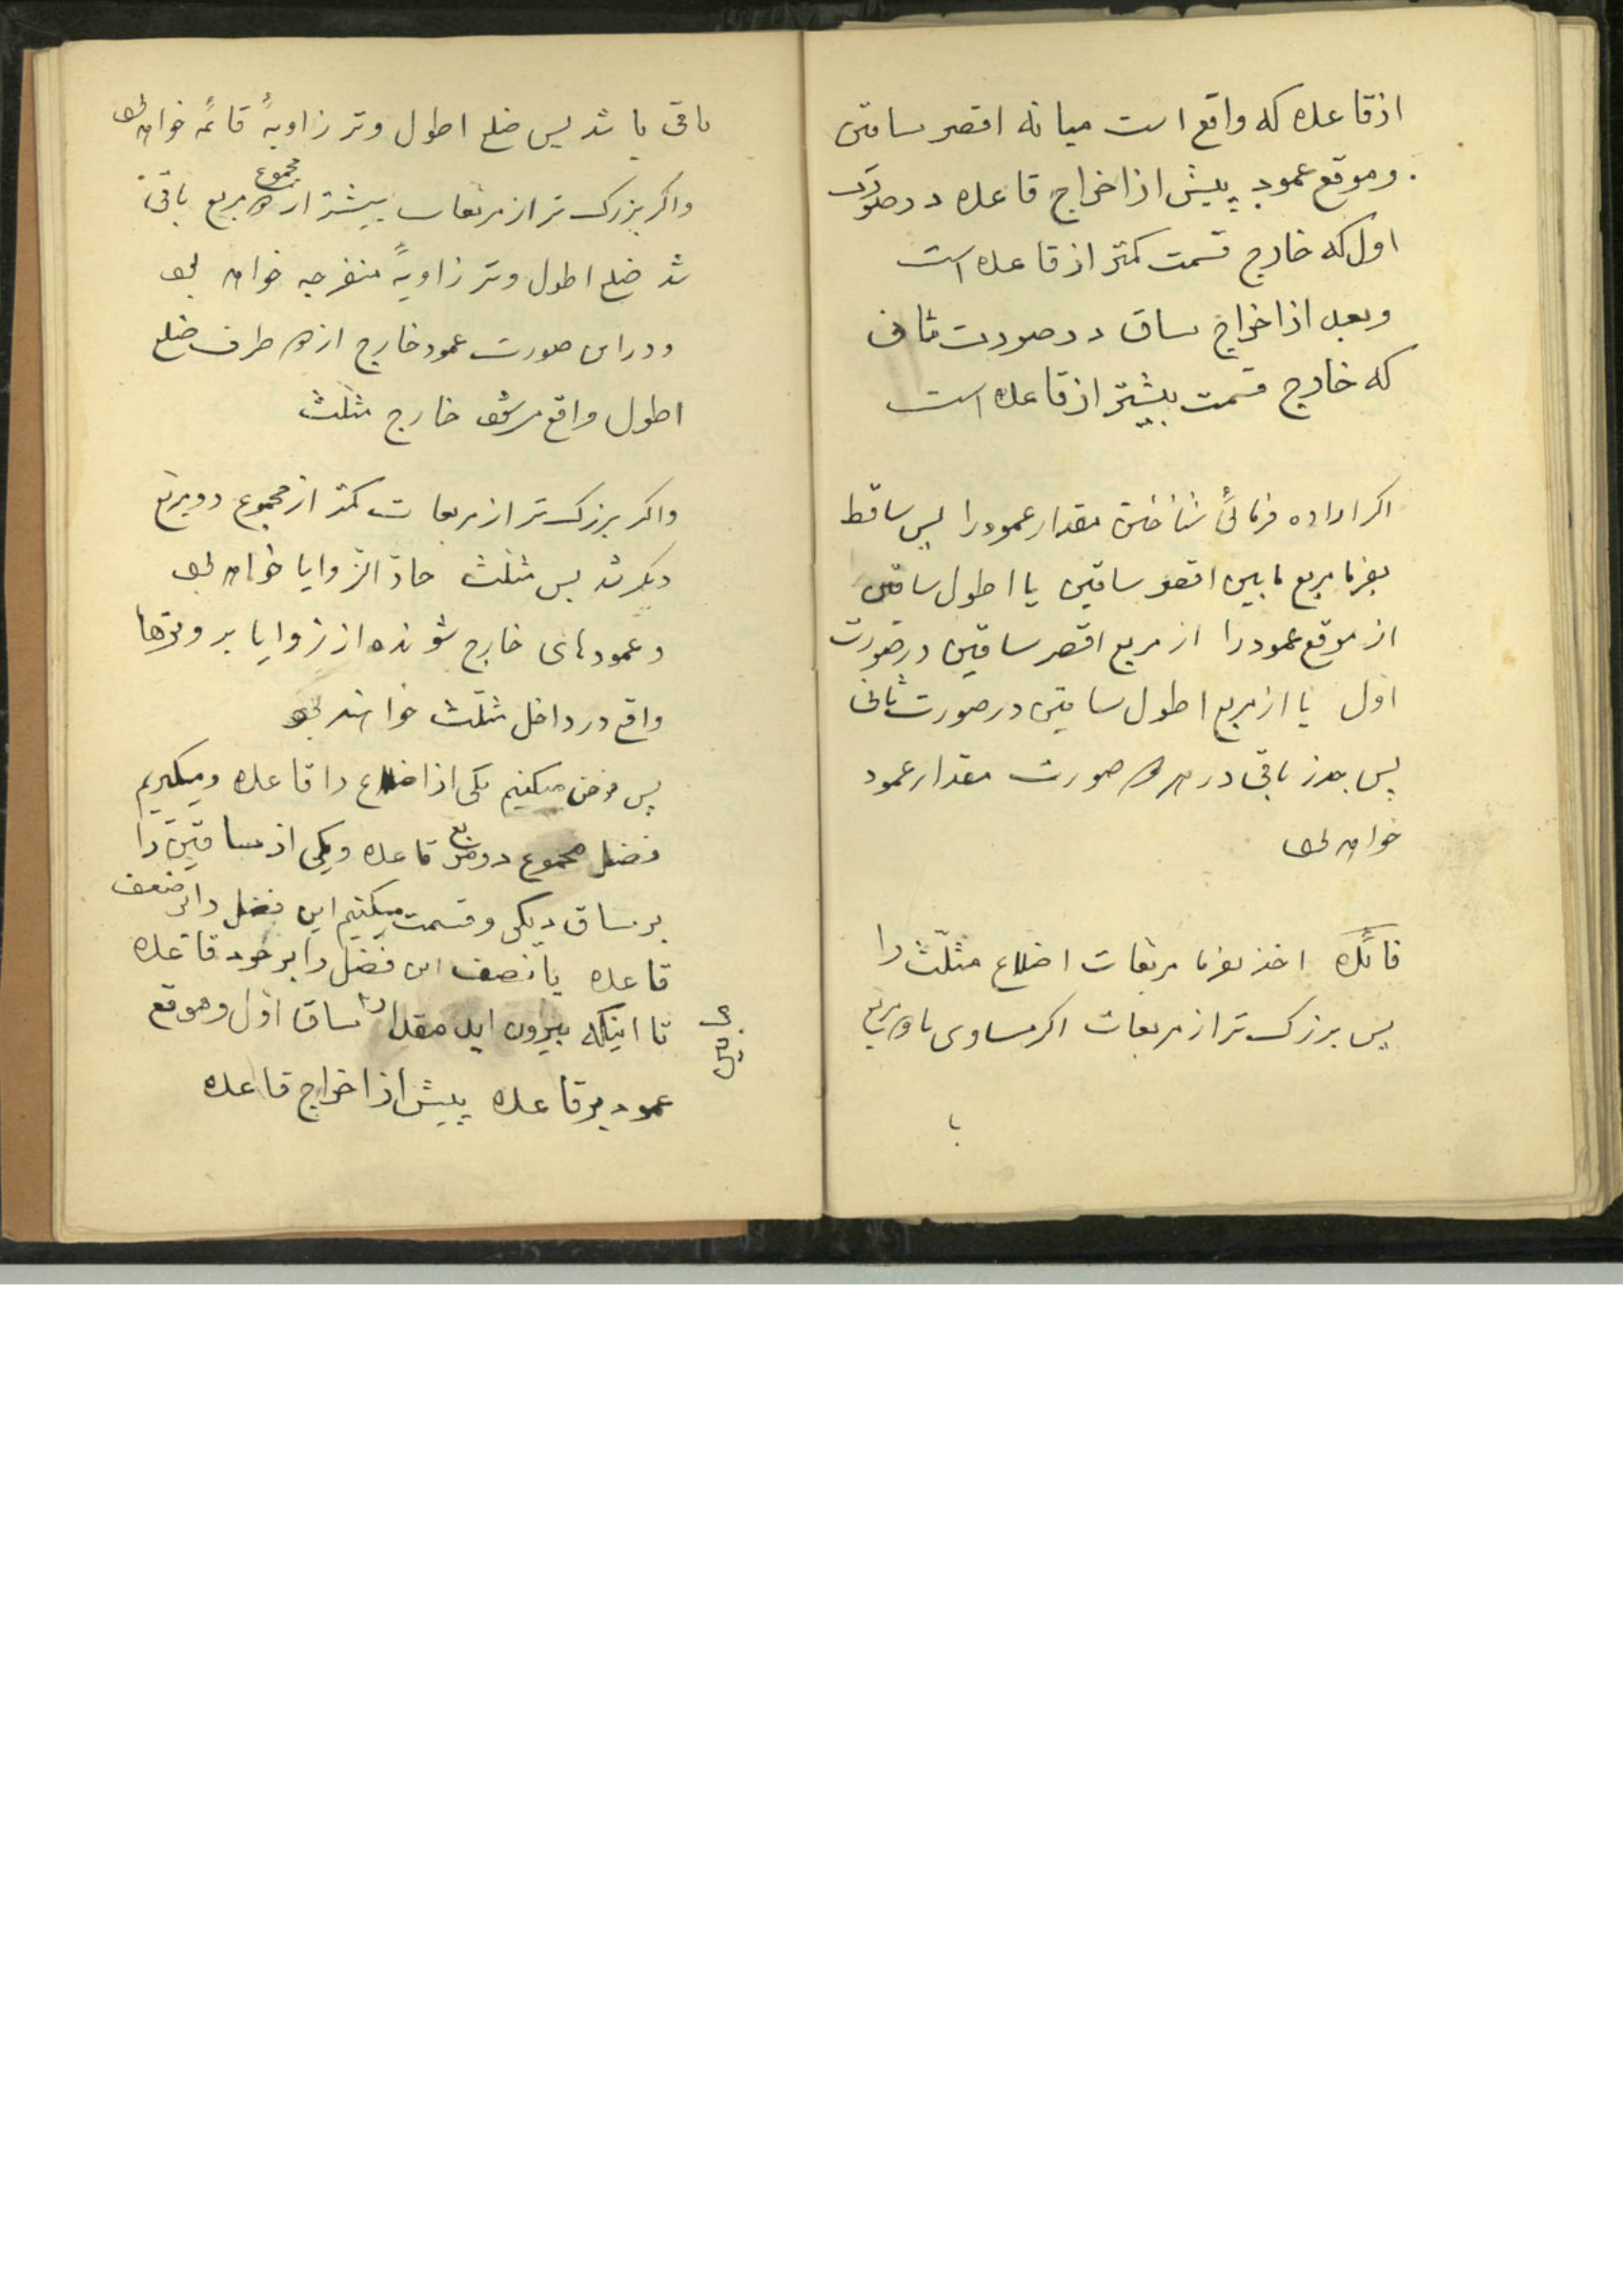 از قاعده که واقع است میانه اقصر ساقین
و موقع عمود پیش از اخراج قاعده در صورت
اول که خارج قسمت کمتر از قاعده است
و بعد از اخراج ساق در صورت ثانی
که خارج قسمت بیشتر از قاعده است
اکر اراده فرمائی شناختن مقدار عمود را پس ساقط
بفرما مربع مابین اقصر ساقین یا اطول ساقین
از موقع عمود را از مربع اقصر ساقین در صورت
اول یا از مربع اطول ساقین در صورت ثانی
پس جذر باقی در هر دو صورت مقدار عمود
خواهد بود
فائده اخذ بفرما مربعات اضلاع مثلّث را
پس بزرک تر از مربعات اکر مساوی با دو مربع
با
باقی باشد پس ضلع اطول وتر زاویهٔ قائمه خواهد بود
و اکر بزرک تر از مربعات بیشتر از مجموع دو مربع باقی
شد ضلع اطول وتر زاویهٔ منفرجه خواهد بود
و در این صورت عمود خارج از دو طرف ضلع
اطول واقع میشود خارج مثلّث
و اکر بزرک تر از مربعات کمتر از مجموع دو مربع
دیکر شد پس مثلّث حادّ الزوایا خواهد بود
و عمودهای خارج شونده از زوایا بر وترها
واقع در داخل مثلّث خواهند بود
پس فرض میکنیم یکی از اضلاع را قاعده و میکیریم
فضل مجموع دو مربع قاعده و یکی از ساقین را
بر ساق دیکر و قسمت میکنیم این فضل را بر ضعف
قاعده یا نصف این فضل را بر خود قاعده
تا اینکه بیرون اید مقدار مابین ساق اول و موقع
عمود بر قاعده پیش از اخراج قاعده